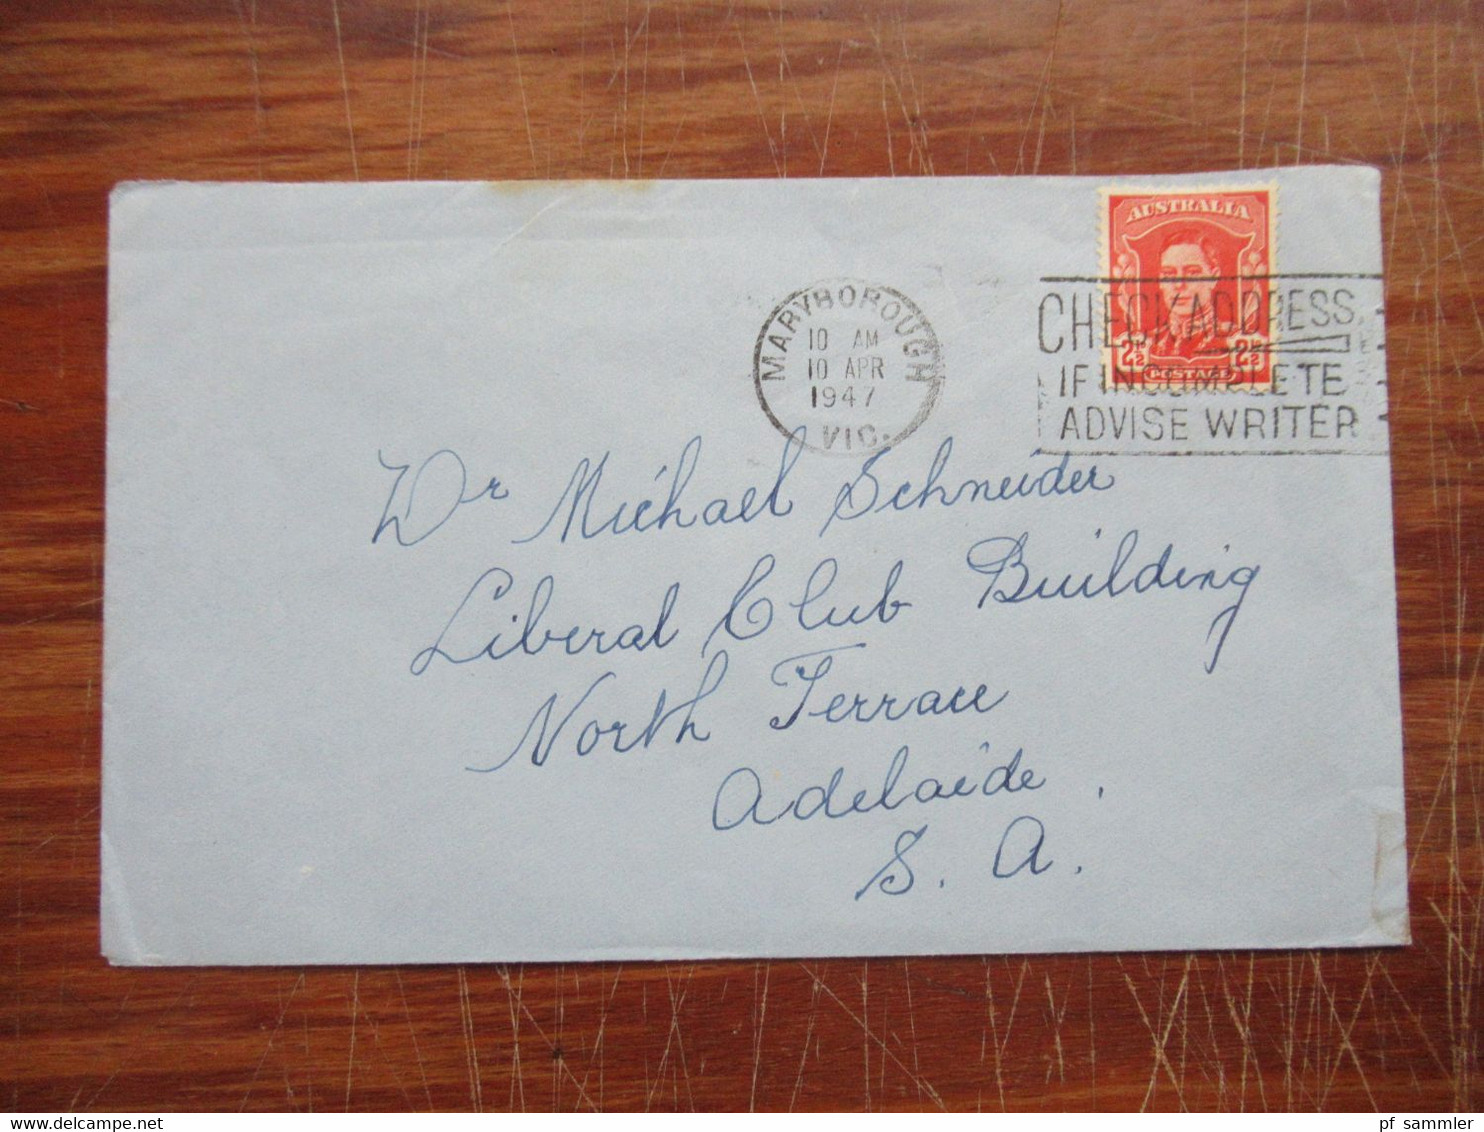 AUSTRALIA
2½ 2½
POSTAGE
MARYBOROUGH
10 AM
10 APR
1947
VIC.
CHECK ADDRESS
IF INCOMPLETE
ADVISE WRITER
Dr Michael Schneider
Liberal Club Building
North Terrace
Adelaide.
S. A.
www.delcampe.net
pf_sammler